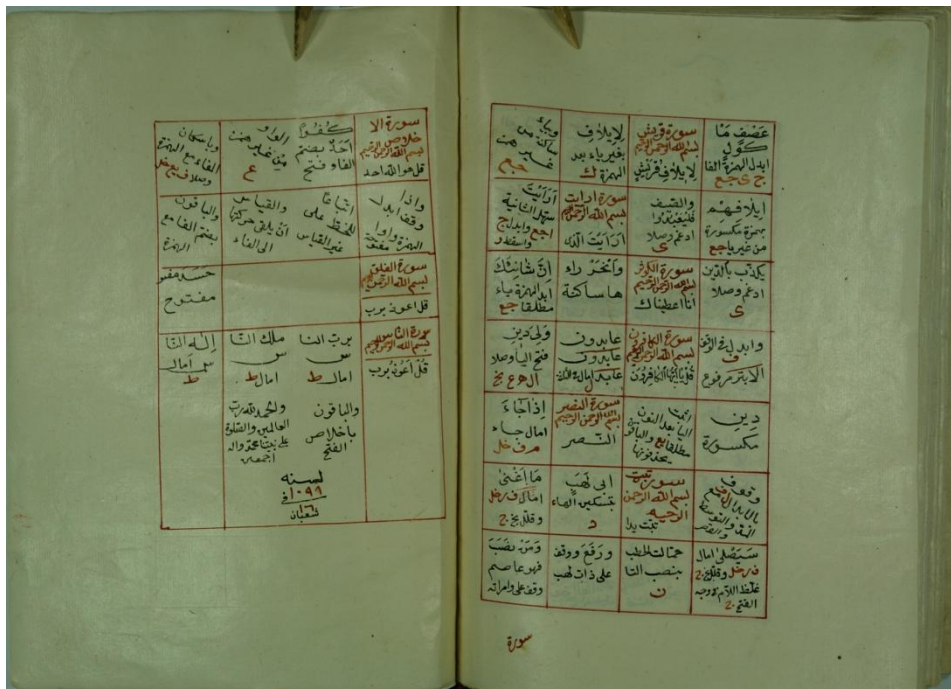 عَصْفٍ مَا
كُولٍ
ابدل الهمزة الفا
ج ى جع
سورة قريش
بسم الله الرحمن الرحيم
لإيلاف قريش
لإيلاف
بغير ياء بعد
الهمزة ك
وبياء
ساكنة من
غير همز
جع
إيلافهم
بهمزة مكسورة
من غير يا جع
والصيف
فليعبدوا
ادغم وصلا
ى
سورة ارايت
بسم الله الرحمن الرحيم
أرايت الذى
أرايت
سهل الثانية
يكذب بالدين
ادغم وصلا
ى
سورة الكوثر
بسم الله الرحمن الرحيم
انا اعطيناك
وانحر راء
ها ساكنة
ان شانئك
ابدل الهمزة ياء
مطلقا جع
وابدل فى الوقف
ف
الابتر مرفوع
سورة الكافرون
بسم الله الرحمن الرحيم
قل يا ايها الكافرون
عابدون
عابدون
عابد
ولى دين
فتح اليا وصلا
دين
مكسورة
اثبت
اليا بعد النون
مطلقا يع والباقون
يحذفونها
سورة النصر
بسم الله الرحمن الرحيم
النصر
إذا جاء
امال جاء
م ف خل
وقوف
بالابدال مع
المد والتوسط
والقصر
سورة تبت
بسم الله الرحمن
الرحيم
تبت يدا
ابى لهب
بتسكين الهاء
د
ما أغنى
امال ف ر خل
وقلل بخ
سيصلى امال
ف ر خل وقلل بخ
غلظ اللام
الفتح
حمالة الحطب
بنصب التا
ن
ورفع ووقف
على ذات لهب
ومن نصب
فهو عاصم
وقف على وامراته
سورة
سورة الا
خلاص
بسم الله الرحمن الرحيم
قل هو الله احد
كفوا
احد بضم
الفا و فتح
الواو
من غير همز
ع
وباسكان
الفاء مع الهمزة
وصلا
واذا
وقف ابدل
الهمزة واوا
مفتوحة
اتباعا
للخط على
غير القياس
والقياس
ان يلقى حركتها
الى الفاء
والباقون
بضم الفا مع
الهمزة
سورة الفلق
بسم الله الرحمن الرحيم
قل اعوذ برب
حسد
مفتوح
سورة الناس
بسم الله الرحمن الرحيم
قل أعوذ برب
برب النا
س
امال ط
ملك النا
س
امال ط
إله النا
س امال
ط
والباقون
باخلاص
الفتح
والحمد لله رب
العالمين والصلوة
على نبينا محمد واله
اجمعين
لسنه
١٠٩٩
فى ١٦
شعبان